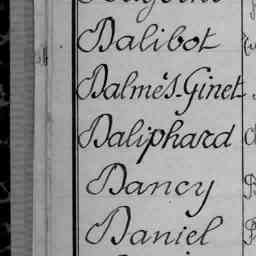 Dalibot
Dalmés-Ginet
Daliphard
Dancy
Daniel